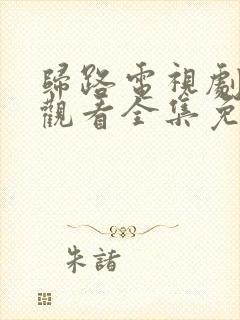 歸路電視劇
觀看全集免
朱諸